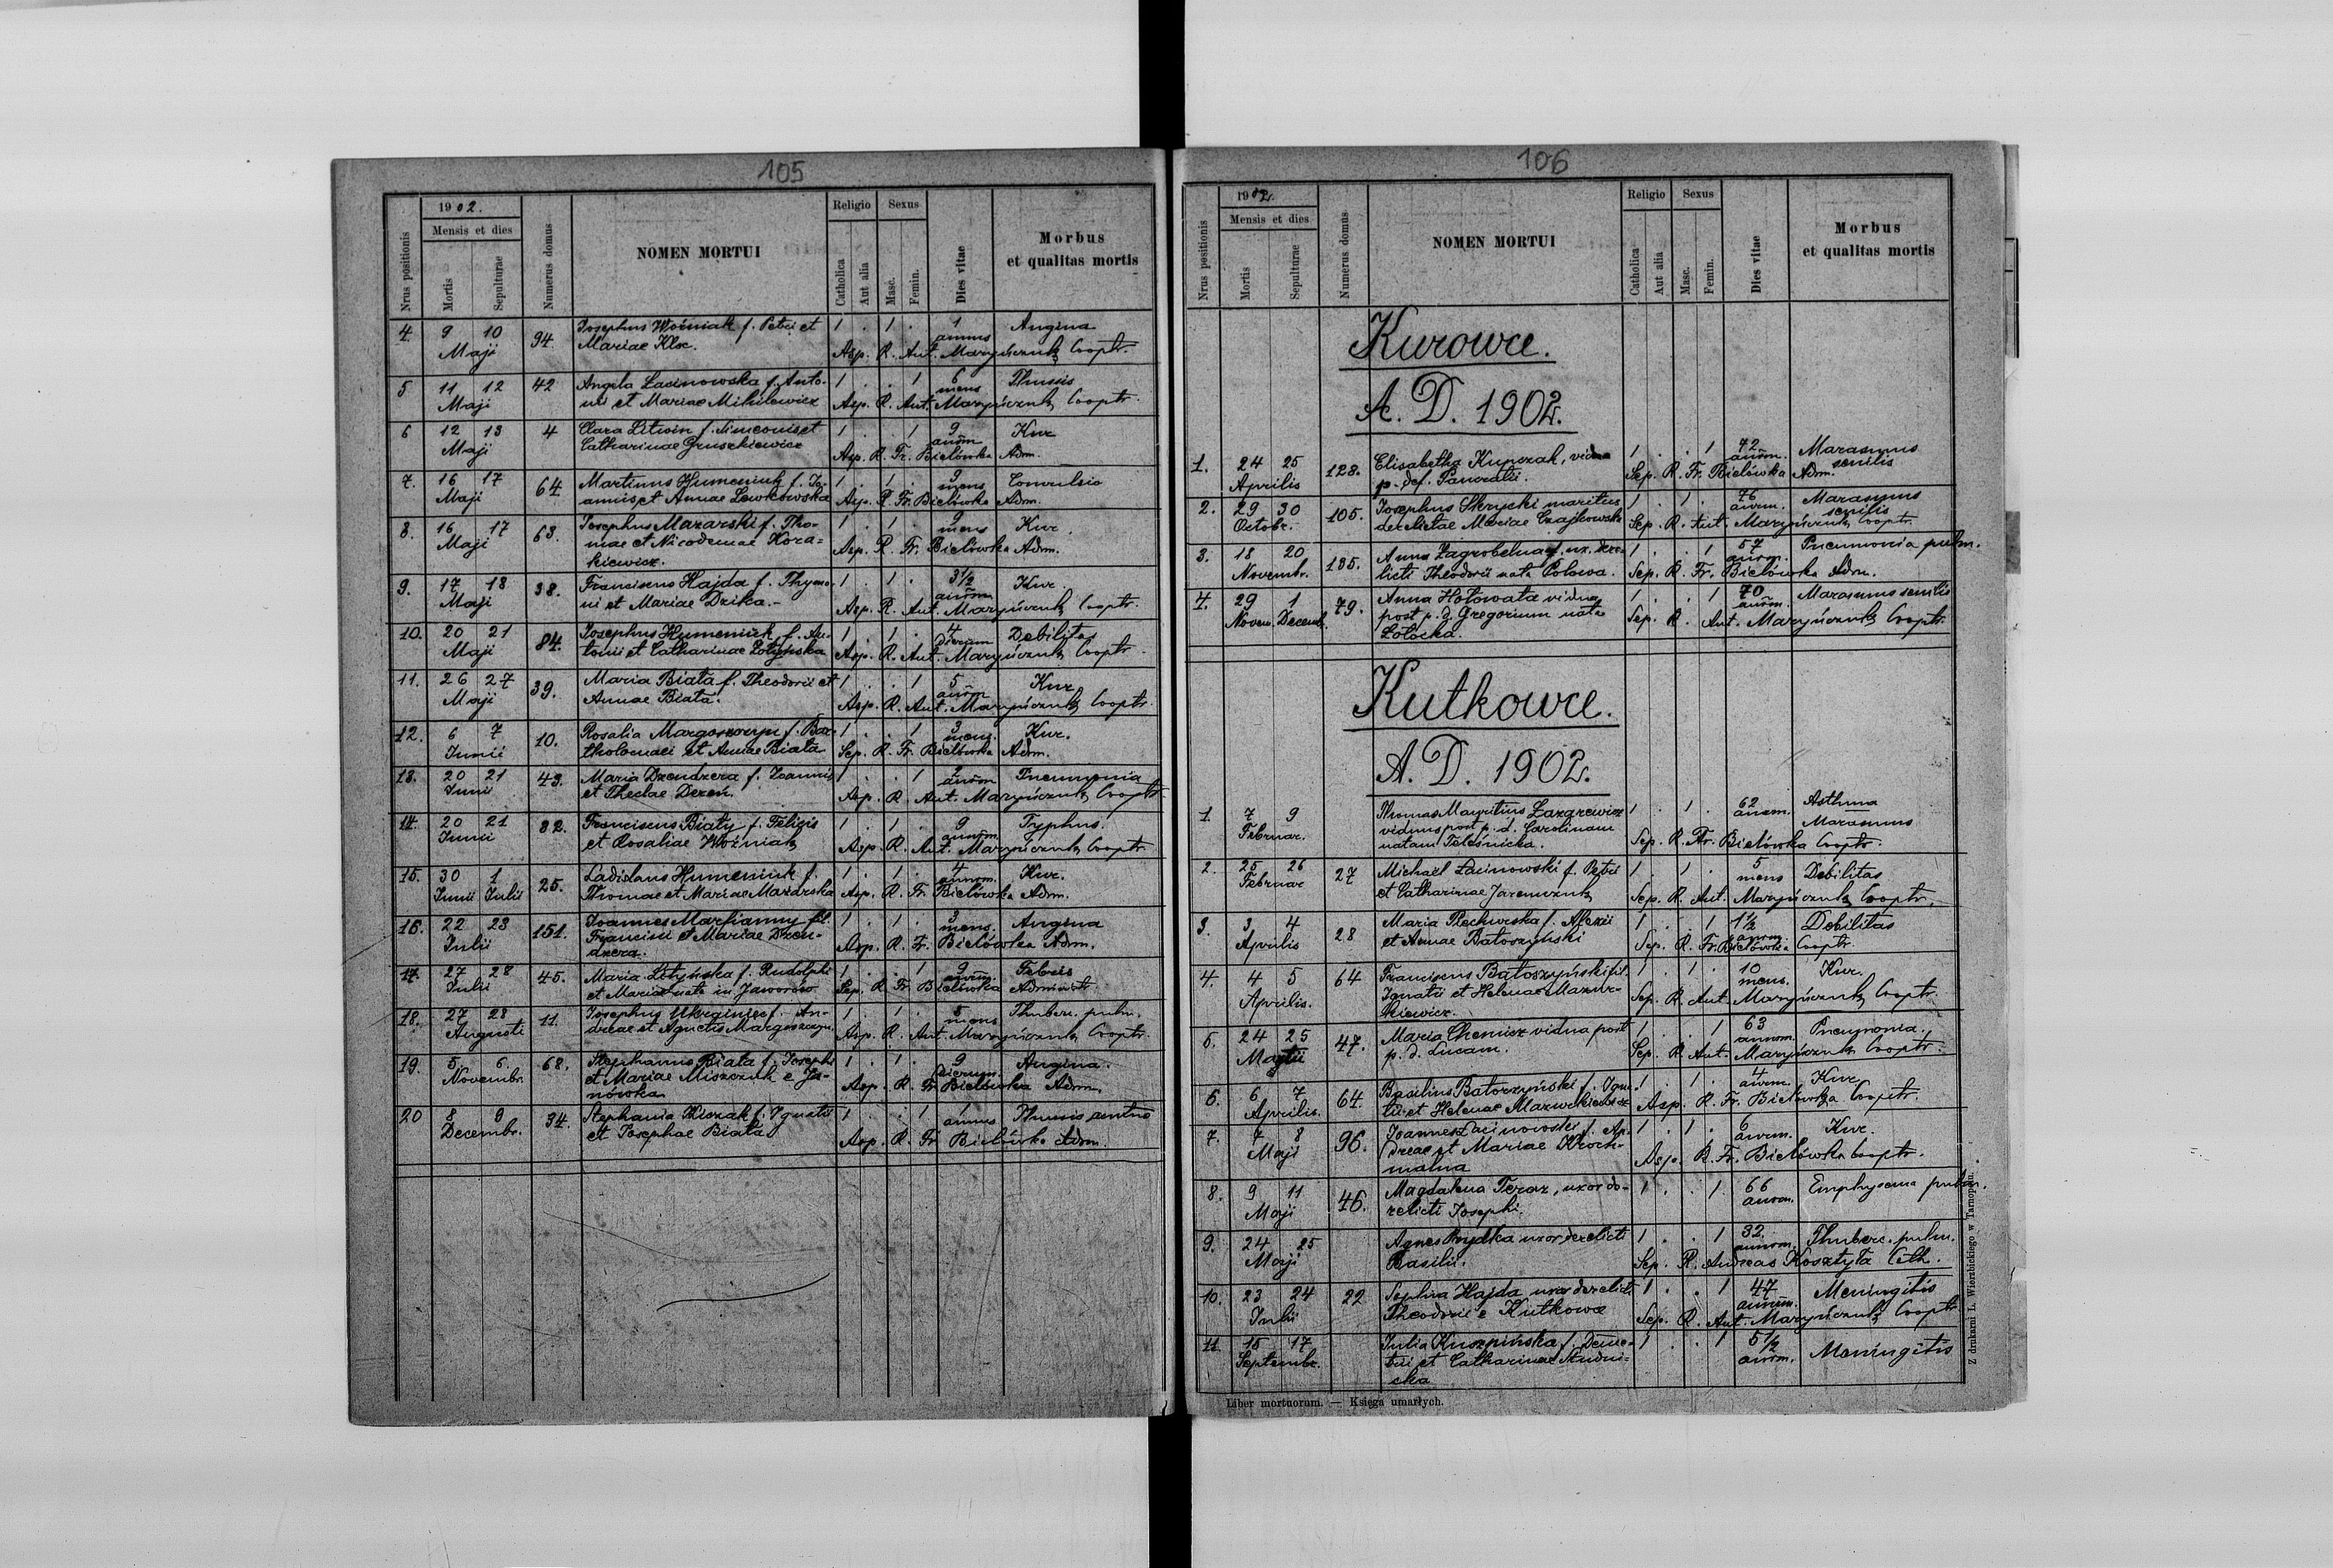 105
1902.
Nrus positionis
Mensis et dies
Mortis
Sepulturae
Numerus domus
NOMEN MORTUI
Religio
Catholica
Aut alia
Sexus
Masc.
Femin.
Dies vitae
Morbus
et qualitas mortis
4. 9 10 94. Josephus Woźniak f. Petri et 1 . 1 . 1 Angina
Maji Mariae Klec. annus
Asp. R. Ant. Maryńczuk Cooptr.
5 11 12 42 Angela Łacinowska f. Anto- 1 . . 1 6 Thussis
Maji nii et Mariae Mikulewicz mens
Asp. R. Ant. Maryńczuk Cooptr.
6 12 13 4 Clara Litwin f. Simeonis et 1 . . 1 9 Kur
Maji Catharinae Gruszkiewicz annom
Asp. R. Fr. Bielówka Adm.
7. 16 17 64. Martinus Humeniuk f. Jo- 1 . 1 . 9 Convulsio
Maji annis et Annae Lewkowska mens
Asp. R. Fr. Bielówka Adm.
8. 16 17 63. Josephus Mazarski f. Tho- 1 . 1 . 9 Kur
Maji mae et Nicodemae Kora- mens
kiewicz. Asp. R. Fr. Bielówka Adm.
9. 17 18 38. Franciscus Hajda f. Thymo- 1 . 1 . 3 1/2 Kur.
Maji ni et Mariae Dzika. annom
Asp. R. Ant. Maryńczuk Cooptr.
10. 20 21 84. Josephus Humeniuk f. An- 1 . 1 . 4 Debilitas
Maji tonii et Catharinae Łotyńska dierum
Asp. R. Ant. Maryńczuk Cooptr.
11. 26 27 39. Maria Biała f. Theodorii et 1 . . 1 5 Kur
Maji Annae Biała. annom
Asp. R. Ant. Maryńczuk Cooptr.
12. 6 7 10. Rosalia Margoszczyn f. Bar- 1 . . 1 3 Kur.
Junii tholomaei et Annae Biała mens.
Sep. R. Fr. Bielówka Adm.
13. 20 21 43. Maria Dzendzera f. Joannis 1 . . 1 2 Pneumonia
Junii et Theclae Dereń. annom
Asp. R. Ant. Maryńczuk Cooptr.
14. 20 21 82. Franciscus Biały f. Felicis 1 . 1 . 9 Tryphus.
Junii et Rosaliae Woźniak annom
Asp. R. Ant. Maryńczuk Cooptr.
15. 30 1 25. Ladislaus Humeniuk f. 1 . 1 . 4 Kur.
Junii Julii Thomae et Mariae Mazarska annom.
Asp. R. Fr. Bielówka Adm.
16. 22 23 151. Joannes Marsianny fil. 1 . 1 . 3 Angina
Julii Francisci et Mariae Dzen- mens.
dzera. Asp. R. Fr. Bielówka Adm.
17. 27 28 45. Maria Lityńska f. Rudolphi 1 . . 1 9 Febris
Julii et Mariae nata in Jaworów annom.
Sep. R. Fr. Bielówka Administr
18. 27 28 11. Josephus Ukrainiec f. An- 1 . 1 . 5 Thuberc. pulm.
Augusti dreae et Agnetis Margoszczyn. mens
Asp. R. Ant. Maryńczuk Cooptr.
19. 5. 6. 68. Stephanus Biała f. Josephi 1 . 1 . 9 Angina.
Novembr. et Mariae Miszczuk e Ja- dierum.
nówka Asp. R. Fr. Bielówka Adm.
20 8 9 34. Stephania Kiczak f. Ignatii 1 . . 1 1 Thussis
Decembr. et Josephae Biała annus
Asp. R. Fr Bielówka Adm.
106
1902.
Nrus positionis
Mensis et dies
Mortis
Sepulturae
Numerus domus
NOMEN MORTUI
Religio
Catholica
Aut alia
Sexus
Masc.
Femin.
Dies vitae
Morbus
et qualitas mortis
Kurowce.
A. D. 1902.
1. 24 25 128. Elisabetha Kupczak, vidua 1 . . 1 72 Marasmus
Aprilis p. def. Pancratii. annom. senilis
Sep. R. Fr. Bielówka Adm.
2. 29 30 105. Josephus Skrycki maritus 1 . 1 . 76 Marasmus
Octobr. derelictae Mariae Czajkowska annm. senilis
Sep. R. Ant. Maryńczuk Cooptr.
3. 18 20 135. Anna Zagrobelna f. ux. dere- 1 . . 1 57 Pneumonia pulm.
Novembr. licti Theodorii nata Połowa. annom.
Sep. R. Fr. Bielówka Adm.
4. 29 1 79. Anna Hołowata vidua 1 . . 1 70 Marasmus senilis
Novem. Decemb. post p. d. Gregorium nata annom.
Zołocka. Sep. R. Ant. Maryńczuk Cooptr.
Kutkowce.
A. D. 1902.
1. 7 9 Thomas Mauritius Łazarewicz 1 . 1 . 62 Asthma
Februar. viduus post p. d. Carolinam annom. Marasmus
natam Teleśnicka. Sep. R. Fr. Bielówka Cooptr.
2. 25 26 27 Michael Łacinowski f. Petri 1 . 1 . 5 Debilitas
Februar et Catharinae Jaremczuk mens
Sep. R. Ant. Maryńczuk Cooptr.
3. 3 4 28 Maria Plechurska f. Alexii 1 . . 1 1 1/2 Debilitas
Aprilis et Annae Batoszyński annom.
Sep. R. Fr. Bielówka Cooptr.
4. 4 5 64 Franciscus Batoszyński fil. 1 . 1 . 10 Kur.
Aprilis. Ignatii et Helenae Mazur- mens.
kiewicz. Sep. R. Ant. Maryńczuk Cooptr.
5. 24 25 47. Maria Chemicz vidua post 1 . . 1 63 Pneumonia.
Martii p. d. Lucam. annom.
Sep. R. Ant. Maryńczuk Cooptr.
6. 6 7 64. Basilius Batorzyński f. Igna- 1 . 1 . 4 Kur
Aprilis. tii et Helenae Mazurkiewicz annm.
Asp. R. Fr. Bielówka Cooptr.
7. 7 8 96. Joannes Łacinowski f. An- 1 . 1 . 6 Kur.
Maji dreae et Mariae Kroch- annm.
malna Asp. R. Fr. Bielówka Cooptr.
8. 9 11 46. Magdalena Teraz, uxor de- 1 . . 1. 66 Emphysema pulm.
Maji relicti Josephi. annom.
9. 24 25 Agnes Prydka uxor derelicti 1 . . 1 32 Thuberc. pulm.
Maji Basilii. annom.
Sep. R. Andreas Kosztyła Cth.
10. 23 24 22 Sophia Hajda uxor derelicti 1 . . 1 47 Meningitis
Julii Theodorii e Kutkowce annom.
Sep. R. Ant. Maryńczuk Cooptr.
11 15 17 Julia Kuszpińska f. Deme- 1 . . 1 5 1/2 Meningitis
Septembr. trii et Catharinae Studni- annom.
cka
Liber mortuorum. — Księga umarłych.
Z drukarni L. Wierzbickiego w Tarnopolu.